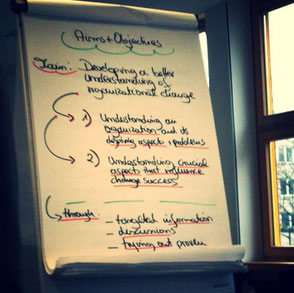 Aims + Objectives
Main: Developing a better
understanding of
organizational change
1) Understanding an
organization and its
defining aspects + problems
2) Understanding crucial
aspects that influence
change success
through
- targeted information
- discussions
- trying out proven